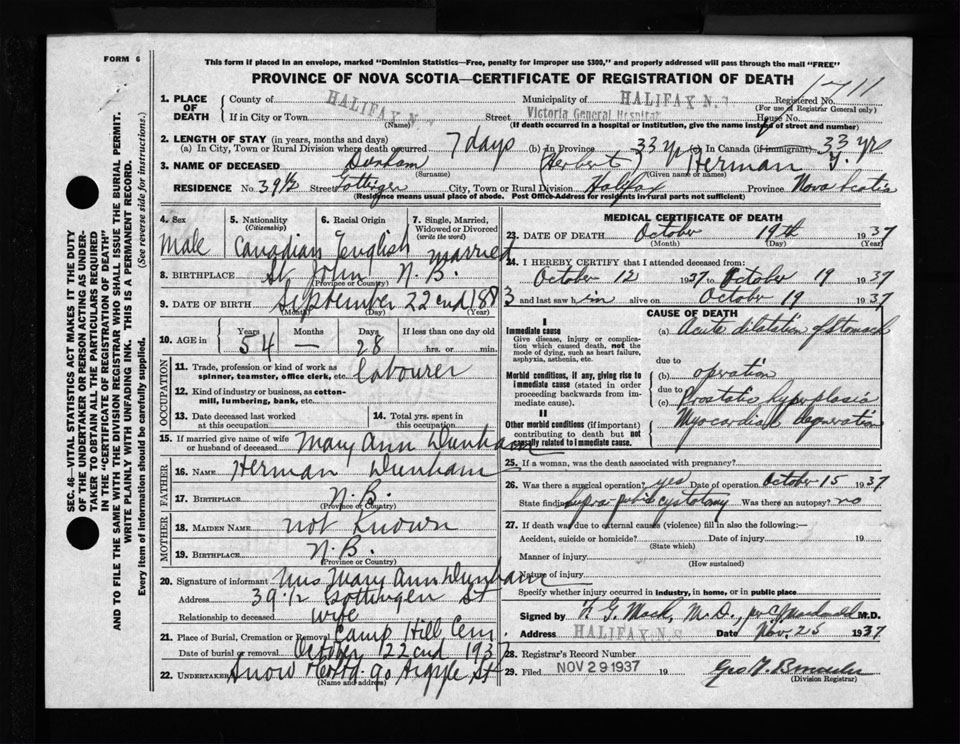 FORM 6
This form if placed in an envelope, marked "Dominion Statistics—Free, penalty for improper use $300," and properly addressed will pass through the mail "FREE"
PROVINCE OF NOVA SCOTIA—CERTIFICATE OF REGISTRATION OF DEATH
1. PLACE OF DEATH County of HALIFAX N. Municipality of HALIFAX N. Registered No. 1711
(For use of Registrar General only)
If in City or Town Street Victoria General Hospital House No.
(Name) (If death occurred in a hospital or institution, give the name instead of street and number)
2. LENGTH OF STAY (in years, months and days)
(a) In City, Town or Rural Division where death occurred 7 days (b) in Province 33 yr (c) In Canada (if immigrant) 33 yrs
3. NAME OF DECEASED Dunham (Herbert) Herman Y.
(Surname) (Given name or names)
RESIDENCE No. 39½ Street Gottingen City, Town or Rural Division Halifax Province Nova Scotia
(Residence means usual place of abode. Post Office Address for residents in rural parts not sufficient)
4. Sex Male
5. Nationality (Citizenship) Canadian
6. Racial Origin English
7. Single, Married, Widowed or Divorced (write the word) married
8. BIRTHPLACE St John N. B.
(Province or Country)
9. DATE OF BIRTH September 22nd 1883
(Month) (Day) (Year)
10. AGE in Years 54 Months — Days 28 If less than one day old hrs. or min.
OCCUPATION
11. Trade, profession or kind of work as spinner, teamster, office clerk, etc. labourer
12. Kind of industry or business, as cotton-mill, lumbering, bank, etc.
13. Date deceased last worked at this occupation
14. Total yrs. spent in this occupation
15. If married give name of wife or husband of deceased Mary Ann Dunham
FATHER
16. NAME Herman Dunham
17. BIRTHPLACE N. B.
(Province or Country)
MOTHER
18. MAIDEN NAME not known
19. BIRTHPLACE N. B.
(Province or Country)
20. Signature of informant Mrs Mary Ann Dunham
Address 39 1/2 Gottingen St
Relationship to deceased wife
21. Place of Burial, Cremation or Removal Camp Hill Cem.
Date of burial or removal October 22nd 1937
22. UNDERTAKER Snow 90 Argyle St
(Name and address)
MEDICAL CERTIFICATE OF DEATH
23. DATE OF DEATH October 19th 1937
(Month) (Day) (Year)
24. I HEREBY CERTIFY that I attended deceased from:
October 12 1937 to October 19 1937
and last saw him alive on October 19 1937
CAUSE OF DEATH
I
Immediate cause
Give disease, injury or complication which caused death, not the mode of dying, such as heart failure, asphyxia, asthenia, etc.
(a) Acute dilatation of stomach
due to
Morbid conditions, if any, giving rise to immediate cause (stated in order proceeding backwards from immediate cause).
(b) operation
due to
(c) Prostatic hyperplasia
II
Other morbid conditions (if important) contributing to death but not causally related to immediate cause.
Myocardial degeneration
25. If a woman, was the death associated with pregnancy?
26. Was there a surgical operation? yes Date of operation October 15 1937
State findings supra pubic cystotomy Was there an autopsy? no
27. If death was due to external causes (violence) fill in also the following:—
Accident, suicide or homicide? Date of injury 19
(State which)
Manner of injury
(How sustained)
Nature of injury
Specify whether injury occurred in industry, in home, or in public place
Signed by F. G. Mack, M.D., per M.D.
Address HALIFAX N. S Date Nov. 25 1937
28. Registrar's Record Number
29. Filed NOV 29 1937 19
(Division Registrar)
SEC. 46—VITAL STATISTICS ACT MAKES IT THE DUTY OF THE UNDERTAKER OR PERSON ACTING AS UNDERTAKER TO OBTAIN ALL THE PARTICULARS REQUIRED IN THE "CERTIFICATE OF REGISTRATION OF DEATH" AND TO FILE THE SAME WITH THE DIVISION REGISTRAR WHO SHALL ISSUE THE BURIAL PERMIT.
WRITE PLAINLY WITH UNFADING INK. THIS IS A PERMANENT RECORD.
Every item of information should be carefully supplied. (See reverse side for instructions.)